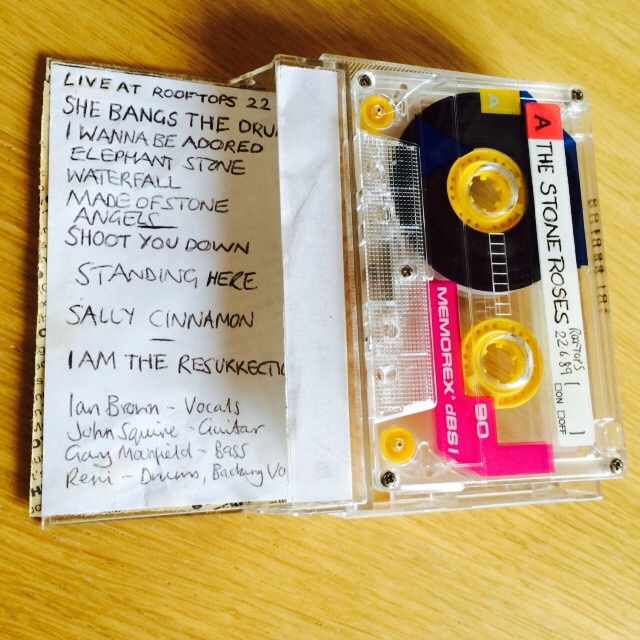 LIVE AT ROOFTOPS 22
SHE BANGS THE DRU
I WANNA BE ADORED
ELEPHANT STONE
WATERFALL
MADE OF STONE
ANGELS
SHOOT YOU DOWN
STANDING HERE
SALLY CINNAMON
I AM THE RESURRECTI
Ian Brown - Vocals
John Squire - Guitar
Gary Manfield - Bass
Reni - Drums, Backing Vo
A
A THE STONE ROSES
ROOFTOPS
22.6.89 [ ]
□ON □OFF
MEMOREX dBS I 90